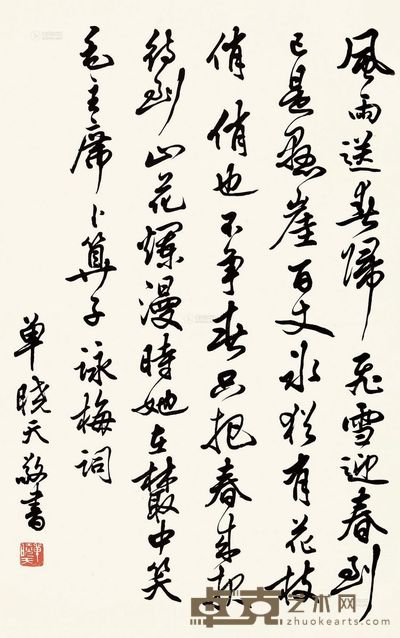 風雨送春歸飛雪迎春到
已是懸崖百丈冰猶有花枝
俏俏也不争春只把春来報
待到山花爛漫時她在叢中笑
毛主席卜算子詠梅詞
單曉天敬書
卓克艺术网
zhuokearts.com